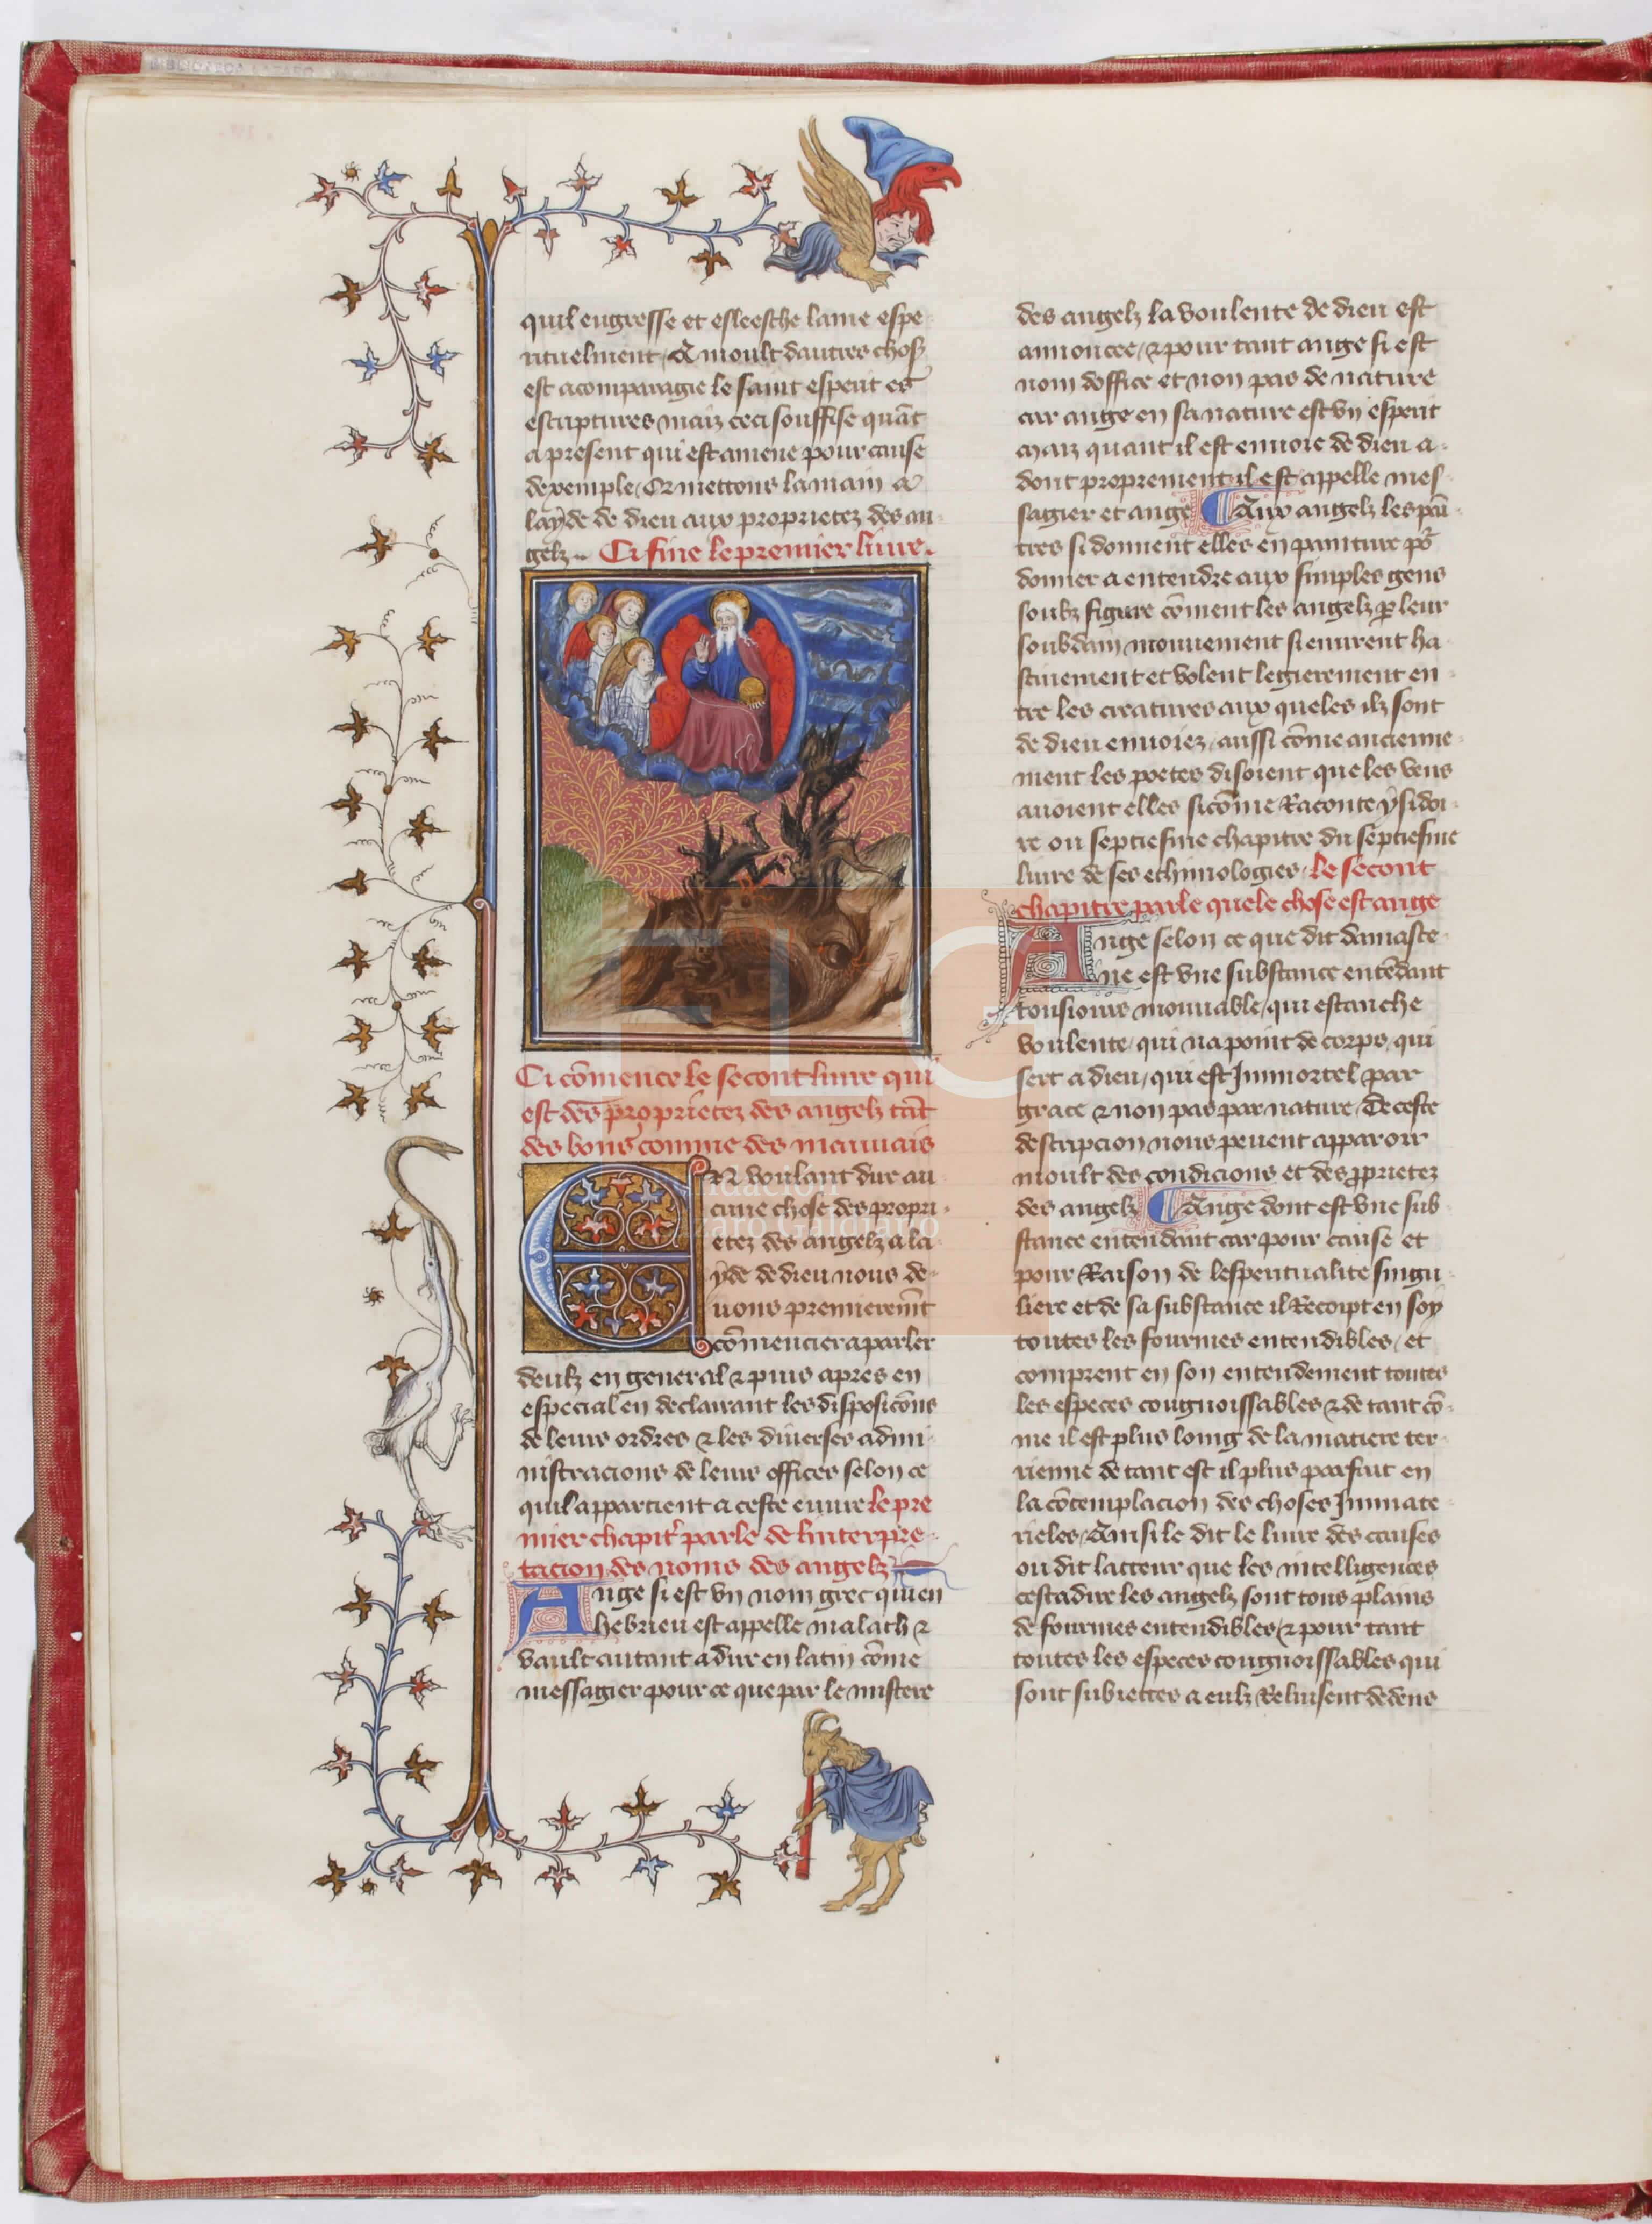 quil engresse et esleesche lame espe
rituelment. A moult dautres choses
est acomparagie le saint esperit es
escriptures maiz ceci souffise quāt
a present qui est amene pour cause
dexemple. Or mettons la main a
layde de dieu aux proprietez des an
gelz. Ci fine le premier liure.
Ci cōmence le secont liure qui
est des proprietez des angelz tāt
des bons comme des mauuais
EN voulant dire au
cune chose des propri
etez des angelz a la
yde de dieu nous de
uons premieremēt
cōmencier a parler
deulz en general & puis apres en
especial en declairant les disposicōns
de leurs ordres & les diuerses admi
nistracions de leurs offices selon ce
quil appartient a ceste euure le pre
mier chapitr̄ parle de linterpre
tacion des noms des angelz
Ange si est vn nom grec qui en
hebrieu est appelle malach &
vault autant a dire en latin cōme
messagier pour ce que par le mistere
des angelz la voulente de dieu est
annoncee, & pour tant ange si est
nom doffice et non pas de nature
car ange en sa nature est vn esperit
maiz quant il est enuoie de dieu a
dont proprement il est appelle mes
sagier et ange Aux angelz les pāi
tres si donnent elles en painture po͛
donner a entendre aux simples gens
soubz figure cōment les angelz p̱ leur
soubdain mouuement si euurent ha
stiuement et volent legierement en
tre les creatures aux queles ilz sont
de dieu enuoiez, aussi cōme ancienne
ment les poetes disoient que les vens
auoient elles si cōme Raconte ysidoi
re ou septiesme chapitre du septiesme
liure de ses ethimologies. le secont
chapitre parle quele chose est ange
Ange selon ce que dit damasce
ne est vne substance entēdant
tousiours mouuable, qui est anche
voulente, qui na point de corps, qui
sert a dieu, qui est Inmortel par
grace & non pas par nature. De ceste
descripcion nous peuent apparoir
moult des condicions et des p̱prietez
des angelz Ange dont est vne sub
stance entendant car pour cause et
pour Raison de lesperitualite singu
liere et de sa substance il Recoipt en soy
toutes les fourmes entendibles, et
comprent en son entendement toutes
les especes congnoissables & de tant cō
me il est plus loing de la matiere ter
rienne de tant est il plus parfait en
la cōtemplacion des choses Inmate
rieles, Ainsi le dit le liure des causes
ou dit lacteur que les intelligences
cest a dire les angelz sont tous plains
de fourmes entendibles, & pour tant
toutes les especes congnoissables qui
sont subiettes a eulz Reluisent dedens
FLG
Lázaro Galdiano